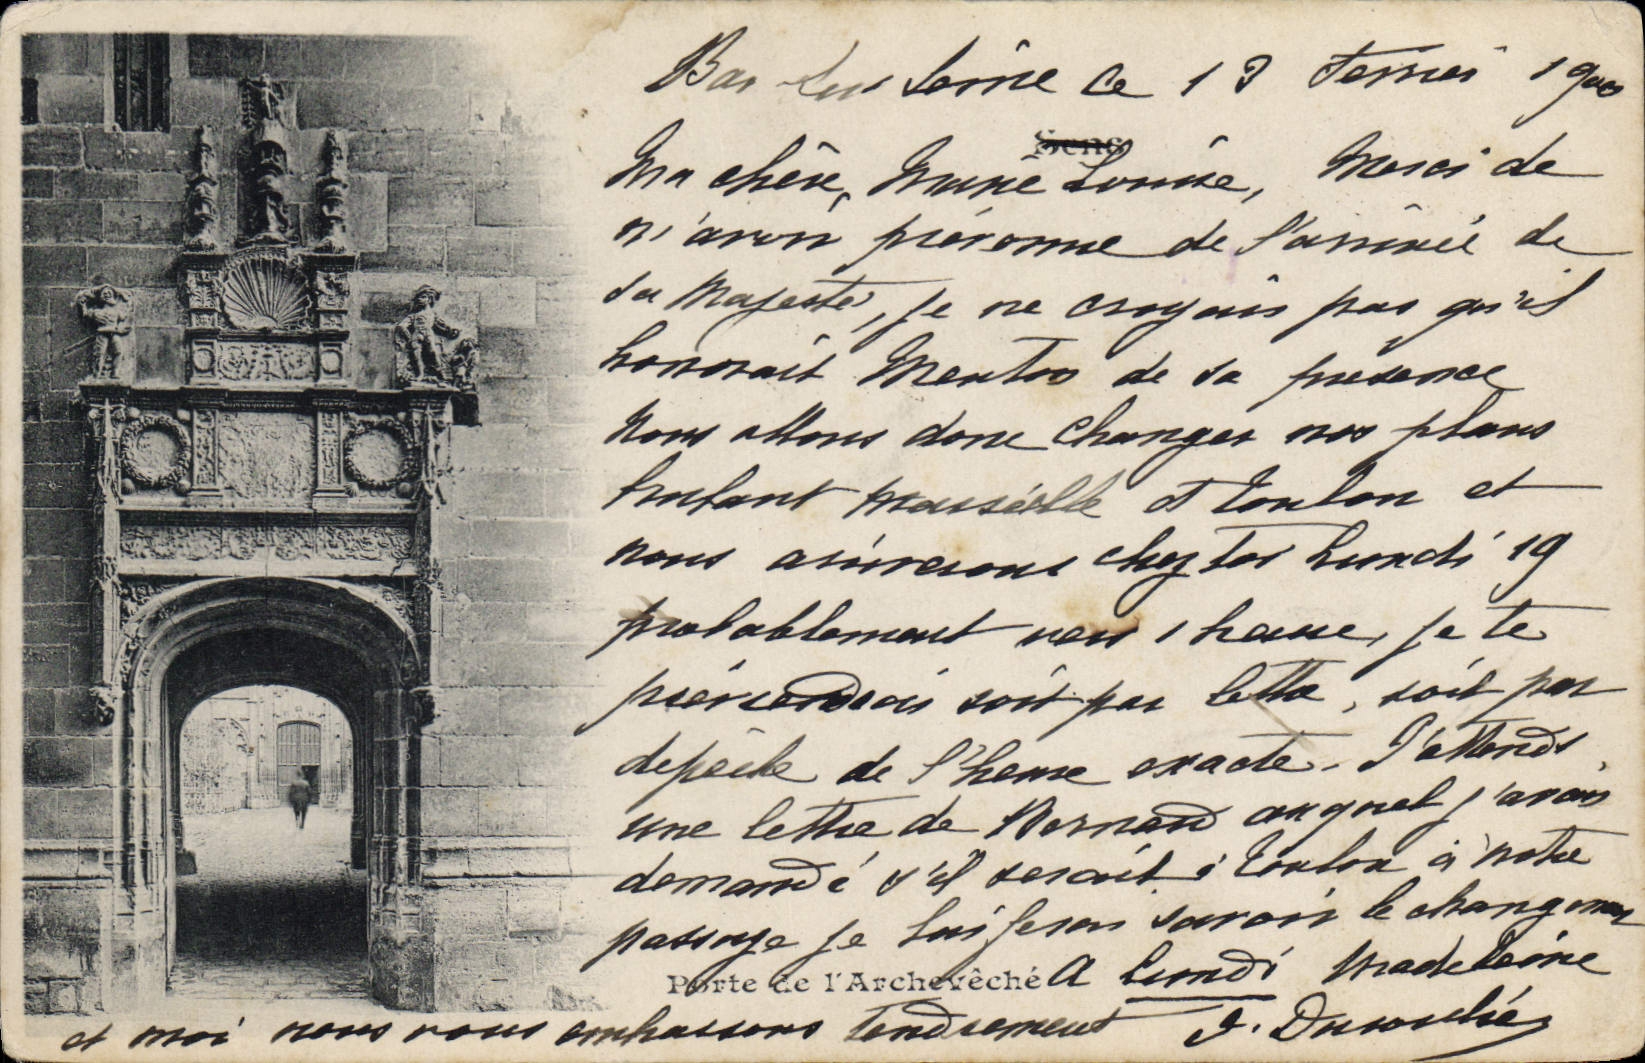 Bar sur Seine ce 13 Fevrier 1900
Sens
Ma chère, Marie Louise, Merci de
m'avoir prévenue de l'arrivée de
sa Majesté, je ne croyais pas qu'il
honorait Menton de sa présence
Nous allons donc changer nos plans
Marseille et Toulon et
nous arriverons chez toi Lundi 19
probablement vers 1 heure, je te
préviendrais soit par lettre, soit par
depêche de l'heure exacte. J'attends
une lettre de Bernard auquel j'avais
demandé s'il serait à Toulon à notre
passage je lui ferai savoir le changement
Porte de l'Archevêché
A Lundi Madeleine
et moi nous vous embrassons tendrement J.